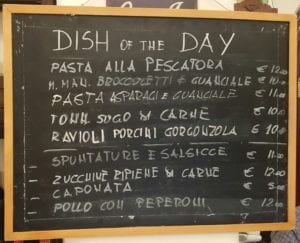 DISH OF THE DAY
PASTA ALLA PESCATORA € 12.00
M. MAN. BROCCOLETTI E GUANCIALE € 10.00
PASTA ASPARAGI E GUANCIALE € 11.00
TONN. SUGO DI CARNE € 10.00
RAVIOLI PORCINI GORGONZOLA € 10.00
SPUNTATURE E SALSICCE € 11.00
ZUCCHINE RIPIENE DI CARNE € 12.00
CAPONATA € 5.00
POLLO CON PEPERONI € 12.00